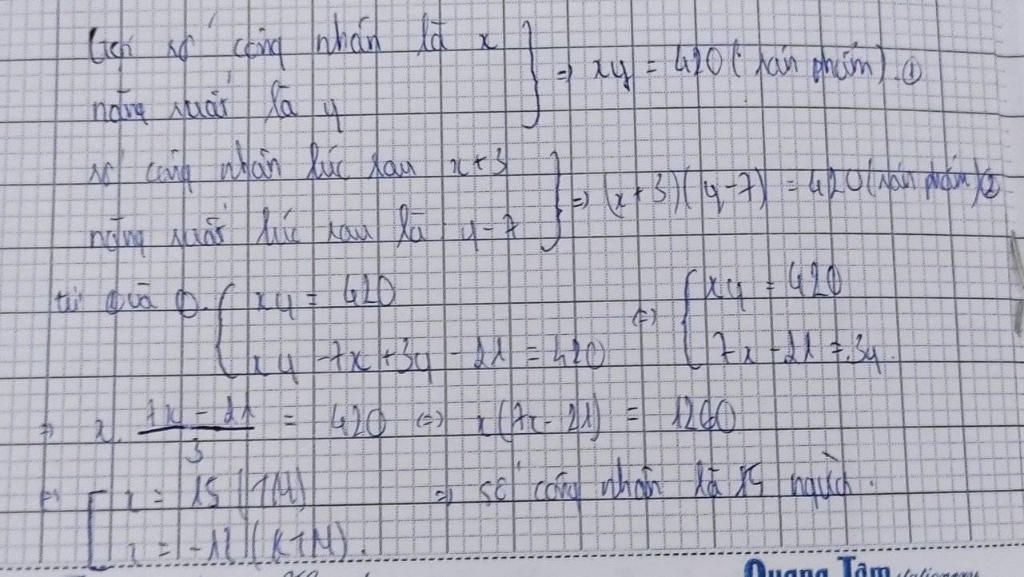 Gọi số công nhân là x
năng suất là y
} => xy = 420 (sản phẩm) ①
số công nhân lúc sau x+3
năng suất lúc sau là y-7
} => (x+3)(y-7) = 420 (sản phẩm) ②
từ ① và ②. { xy = 420
xy - 7x + 3y - 21 = 420
<=> { xy = 420
7x - 21 = 3y.
=> x. (7x - 21)/3 = 420 <=> x(7x - 21) = 1260
<=> [ x = 15 (TM)
x = -12 (KTM).
=> số công nhân là 15 người.
Quang Tâm stationery